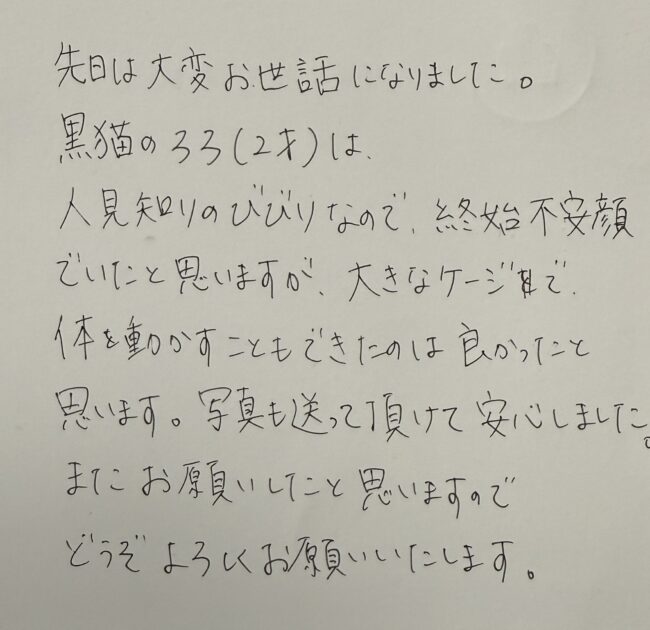 先日は大変お世話になりました。
黒猫のろろ(2才)は、
人見知りのびびりなので、終始不安顔
でいたと思いますが、大きなケージで、
体を動かすこともできたのは良かったと
思います。写真も送って頂けて安心しました。
またお願いしたいと思いますので
どうぞよろしくお願いいたします。